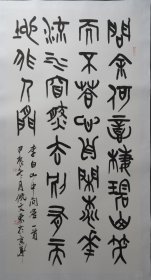 問余何意棲碧山笑
而不答心自閑桃花
流水窅然去別有天
地非人間
李白山中问答一首